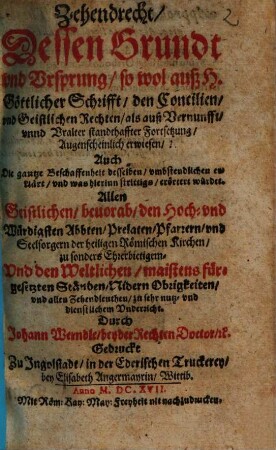 2
Zehendrecht/
Dessen Grundt
vnd Vrsprung/ so wol auß H.
Göttlicher Schrifft/ den Concilien/
vnd Geistlichen Rechten/ als auß Vernunfft/
vnnd Vralter standthaffter Fortsetzung/
Augenscheinlich erwiesen/ ꝛc.
Auch
Die gantze Beschaffenheit desselben/ vmbstendlichen er-
klärt/ vnd was hierinn strittigs/ erörtert würdet.
Allen
Geistlichen/ beuorab/ den Hoch- vnd
Würdigsten Abbten/ Prelaten/ Pfarrern/ vnd
Seelsorgern der heiligen Römischen Kirchen/
zu sonders Ehrerbietigem-
Vnd den Weltlichen/ maistens für-
gesetzten Stånden/ Nidern Obrigkeiten/
vnd allen Zehendleuthen/ zu sehr nutz- vnd
dienstlichem Vnderricht.
Durch
Johann Werndle/ beyder Rechten Doctor/ ꝛc.
Gedruckt
Zu Ingolstadt/ in der Ederischen Truckerey/
bey Elisabeth Angermayrin/ Wittib.
Anno M. DC. XVII.
Mit Röm: Kay: May: Freyheit nit nachzudrucken.